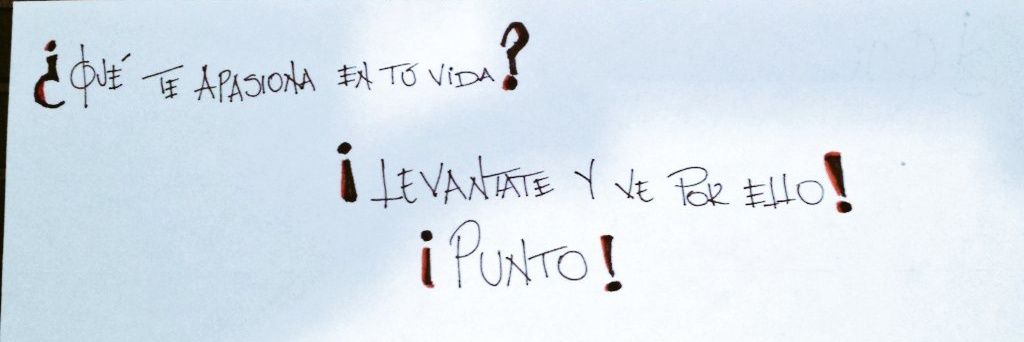 ¿QUÉ TE APASIONA EN TÚ VIDA?
¡LEVANTATE Y VE POR ELLO!
¡PUNTO!